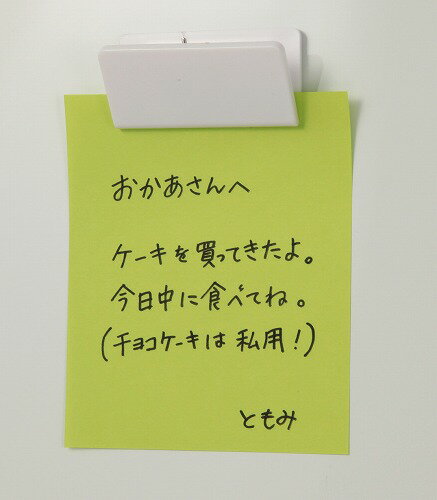 おかあさんへ
ケーキを買ってきたよ。
今日中に食べてね。
(チョコケーキは私用!)
ともみ